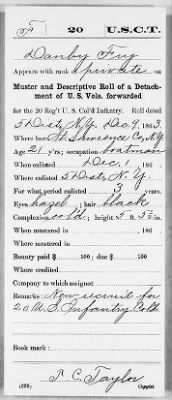 F 20 U.S.C.T.
Danby Fry
Appears with rank of private on
Muster and Descriptive Roll of a Detach-
ment of U. S. Vols. forwarded
for the 20 Reg't U. S. Col'd Infantry. Roll dated
5 Dist. N.Y. Dec 9, 1863.
Where born St. Lawrence Co, N.Y.
Age 21 y'rs; occupation boatman
When enlisted Dec. 1, 186 .
Where enlisted 5 Dist. N.Y.
For what period enlisted 3 years.
Eyes hazel; hair black
Complexion col'd; height 5 ft. 5½ in.
When mustered in , 186 .
Where mustered in
Bounty paid $ 100; due $ 100
Where credited
Company to which assigned
Remarks: New recruit for
20 U.S. Infantry Cold
Book mark:
P. C. Taylor
(339) Copyist.